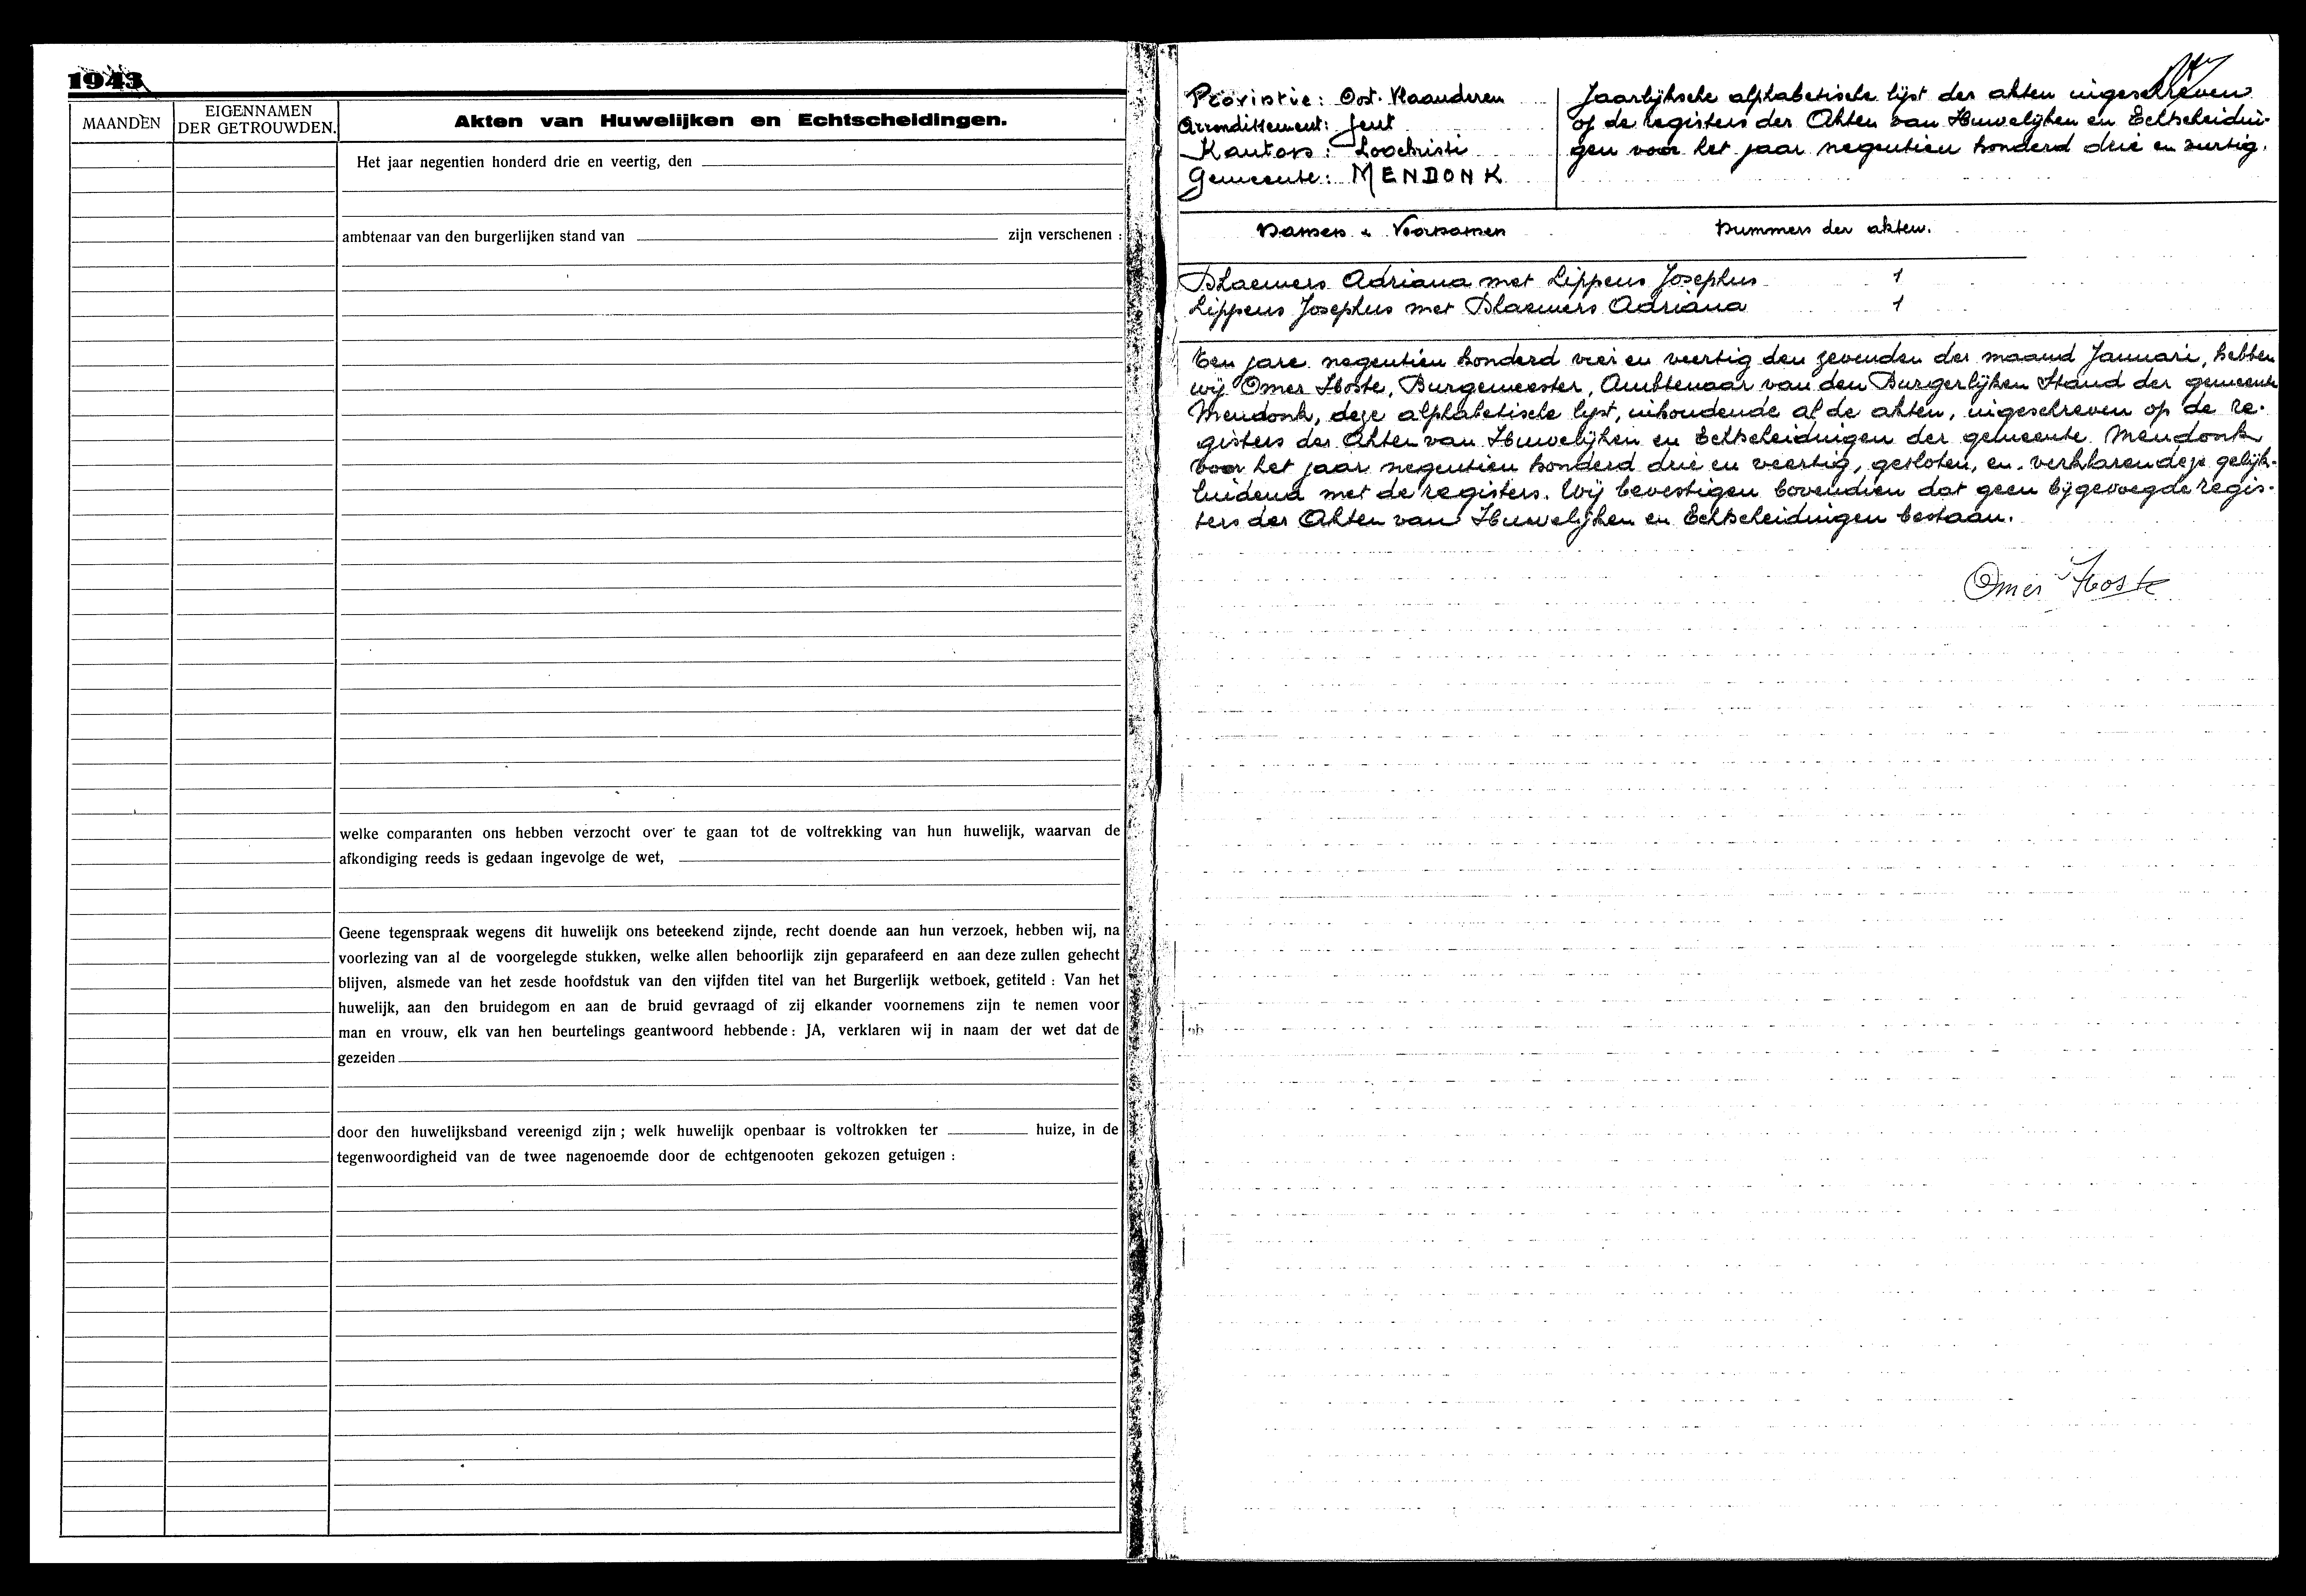 1943
MAANDEN
EIGENNAMEN
DER GETROUWDEN.
Akten van Huwelijken en Echtscheidingen.
Het jaar negentien honderd drie en veertig, den
ambtenaar van den burgerlijken stand van zijn verschenen :
welke comparanten ons hebben verzocht over te gaan tot de voltrekking van hun huwelijk, waarvan de
afkondiging reeds is gedaan ingevolge de wet,
Geene tegenspraak wegens dit huwelijk ons beteekend zijnde, recht doende aan hun verzoek, hebben wij, na
voorlezing van al de voorgelegde stukken, welke allen behoorlijk zijn geparafeerd en aan deze zullen gehecht
blijven, alsmede van het zesde hoofdstuk van den vijfden titel van het Burgerlijk wetboek, getiteld : Van het
huwelijk, aan den bruidegom en aan de bruid gevraagd of zij elkander voornemens zijn te nemen voor
man en vrouw, elk van hen beurtelings geantwoord hebbende : JA, verklaren wij in naam der wet dat de
gezeiden
door den huwelijksband vereenigd zijn ; welk huwelijk openbaar is voltrokken ter huize, in de
tegenwoordigheid van de twee nagenoemde door de echtgenooten gekozen getuigen :
Provintie : Oost-Vlaanderen
Arrondissement : Gent
Kanton : Loochristi
Gemeente : MENDONK
Jaarlijksche alphabetische lijst der akten ingeschreven
op de registers der Akten van Huwelijken en Echtscheidin-
gen voor het jaar negentien honderd drie en veertig.
Namen & Voornamen Nummers der akten.
Blaewers Adriana met Lippens Josephus 1
Lippens Josephus met Blaewers Adriana 1
Ten jare negentien honderd vier en veertig den zevenden der maand Januari, hebben
wij Omer Hoste, Burgemeester, Ambtenaar van den Burgerlijken Stand der gemeente
Mendonk, deze alphabetische lijst, inhoudende al de akten, ingeschreven op de re-
gisters der Akten van Huwelijken en Echtscheidingen der gemeente Mendonk
voor het jaar negentien honderd drie en veertig, gesloten, en verklaren deze gelijk-
luidend met de registers. Wij bevestigen bovendien dat geen bijgevoegde regis-
ters der Akten van Huwelijken en Echtscheidingen bestaan.
Omer Hoste